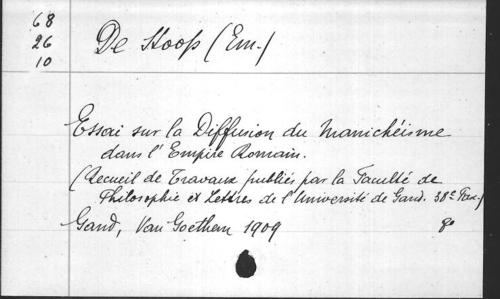 68
26
10
De Stoop (Em.)
Essai sur la Diffusion du Manichéisme
dans l'Empire Romain.
(Recueil de Travaux publiés par la Faculté de
Philosophie et Lettres de l'Université de Gand. 38e Fasc.)
Gand, Van Goethem 1909
8o